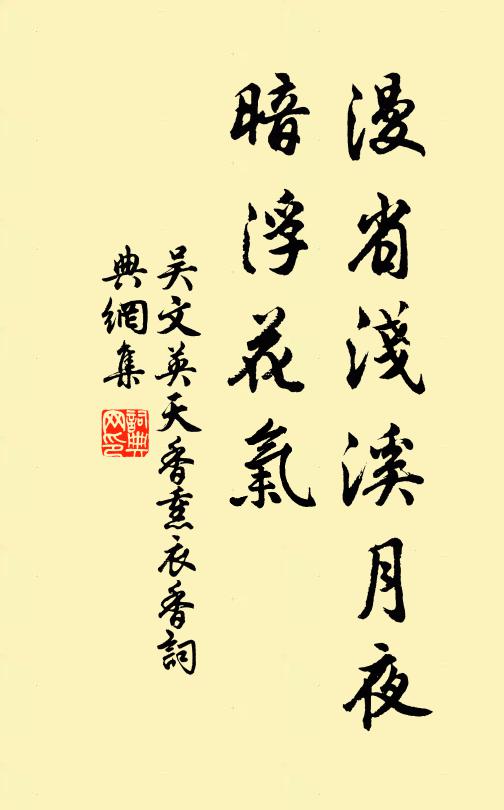 漫省淺溪月夜
暗浮花氣
吳文英天香熏衣香詞
典網集
詞典
网印